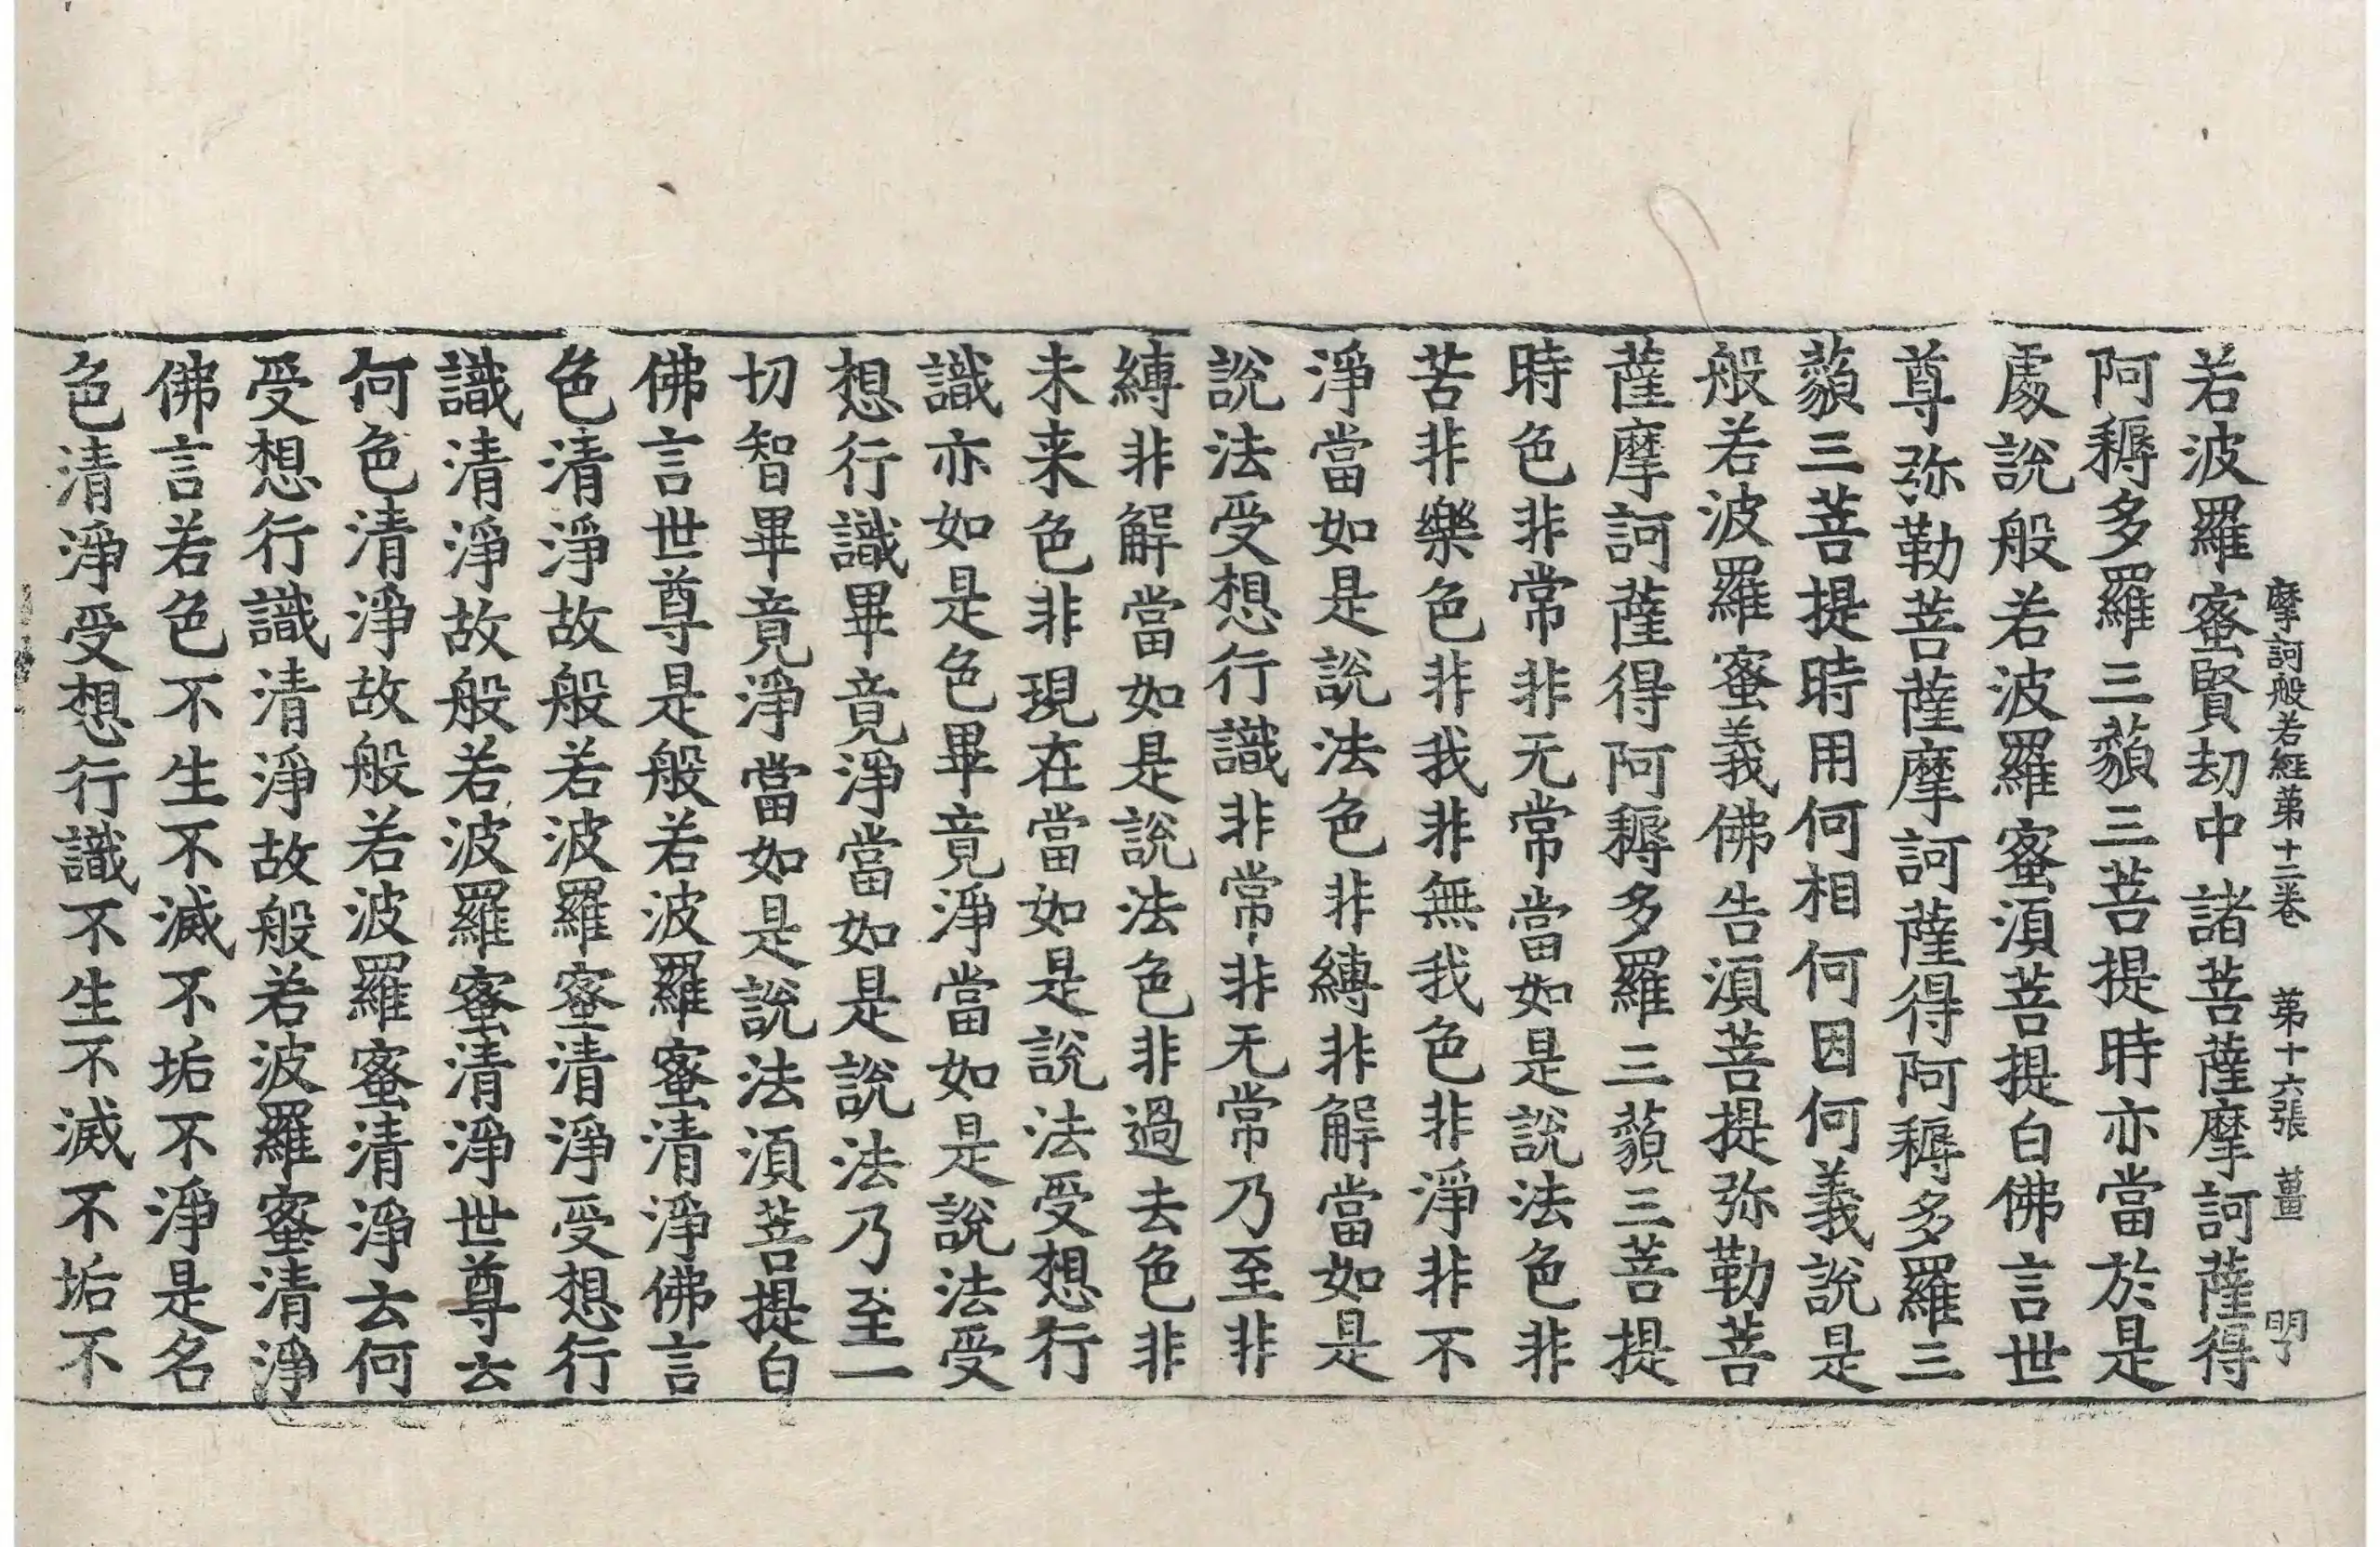 摩訶般若經第十二卷　第十六張　薑　明了
若波羅蜜賢劫中諸菩薩摩訶薩得
阿耨多羅三藐三菩提時亦當於是
處說般若波羅蜜須菩提白佛言世
尊弥勒菩薩摩訶薩得阿耨多羅三
藐三菩提時用何相何因何義說是
般若波羅蜜義佛告須菩提弥勒菩
薩摩訶薩得阿耨多羅三藐三菩提
時色非常非无常當如是說法色非
苦非樂色非我非無我色非淨非不
淨當如是說法色非縛非解當如是
說法受想行識非常非无常乃至非
縛非解當如是說法色非過去色非
未来色非現在當如是說法受想行
識亦如是色畢竟淨當如是說法受
想行識畢竟淨當如是說法乃至一
切智畢竟淨當如是說法須菩提白
佛言世尊是般若波羅蜜清淨佛言
色清淨故般若波羅蜜清淨受想行
識清淨故般若波羅蜜清淨世尊云
何色清淨故般若波羅蜜清淨云何
受想行識清淨故般若波羅蜜清淨
佛言若色不生不滅不垢不淨是名
色清淨受想行識不生不滅不垢不